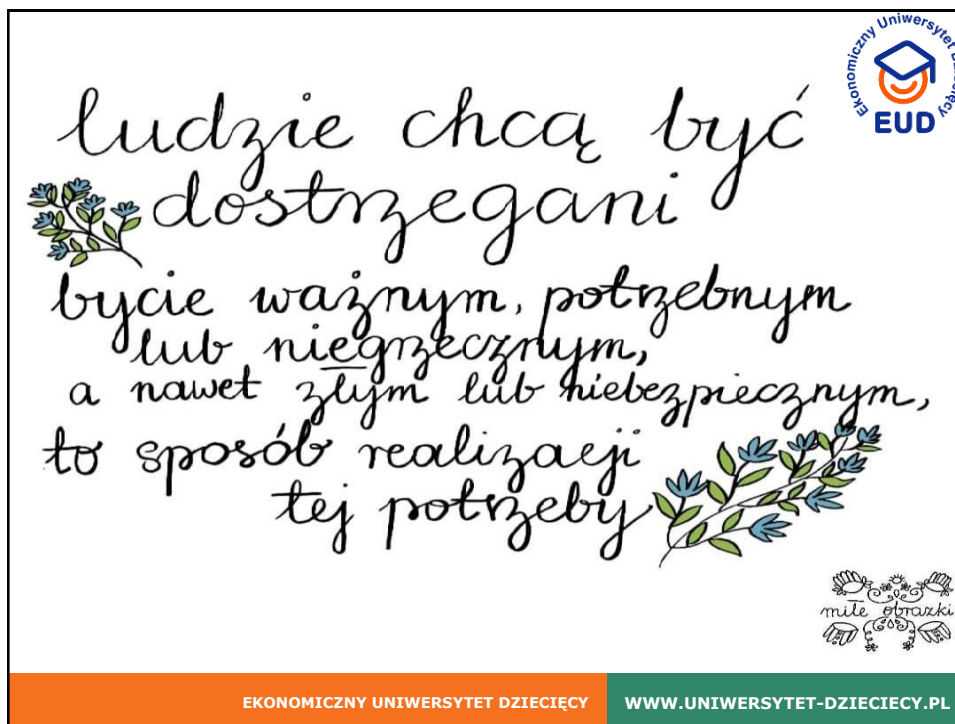 Ekonomiczny Uniwersytet Dziecięcy
EUD
ludzie chcą być
dostrzegani
bycie ważnym, potrzebnym
lub niegrzecznym,
a nawet złym lub niebezpiecznym,
to sposób realizacji
tej potrzeby
miłe obrazki
EKONOMICZNY UNIWERSYTET DZIECIĘCY
WWW.UNIWERSYTET-DZIECIECY.PL